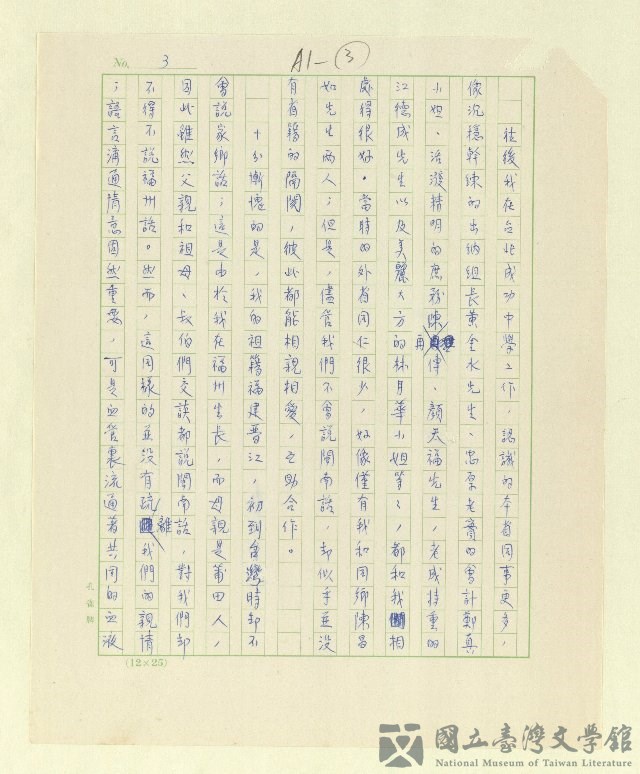 No. 3
A1-③
往後我在台北成功中學工作,認識的本省同事更多,
像沉穩幹練的出納組長黃金水先生、忠厚老實的會計鄭真
小姐、活潑精明的庶務陳再傳、顏天福先生,老成持重的
江德成先生以及美麗大方的林月華小姐等等,都和我相
處得很好。當時的外省同仁很少,好像僅有我和同鄉陳昌
如先生兩人;但是,儘管我們不會說閩南話,却似乎並沒
有省籍的隔閡,彼此都能相親相愛,互助合作。
十分慚愧的是,我的祖籍福建晉江,初到台灣時却不
會說家鄉話;這是由於我在福州生長,而母親是莆田人,
因此雖然父親和祖母、叔伯們交談都說閩南話,對我們却
不得不說福州話。然而,這同樣的並沒有疏離我們的親情
;語言溝通情意固然重要,可是血管裏流通著共同的血液
(12×25)
國立臺灣文學館
National Museum of Taiwan Literature